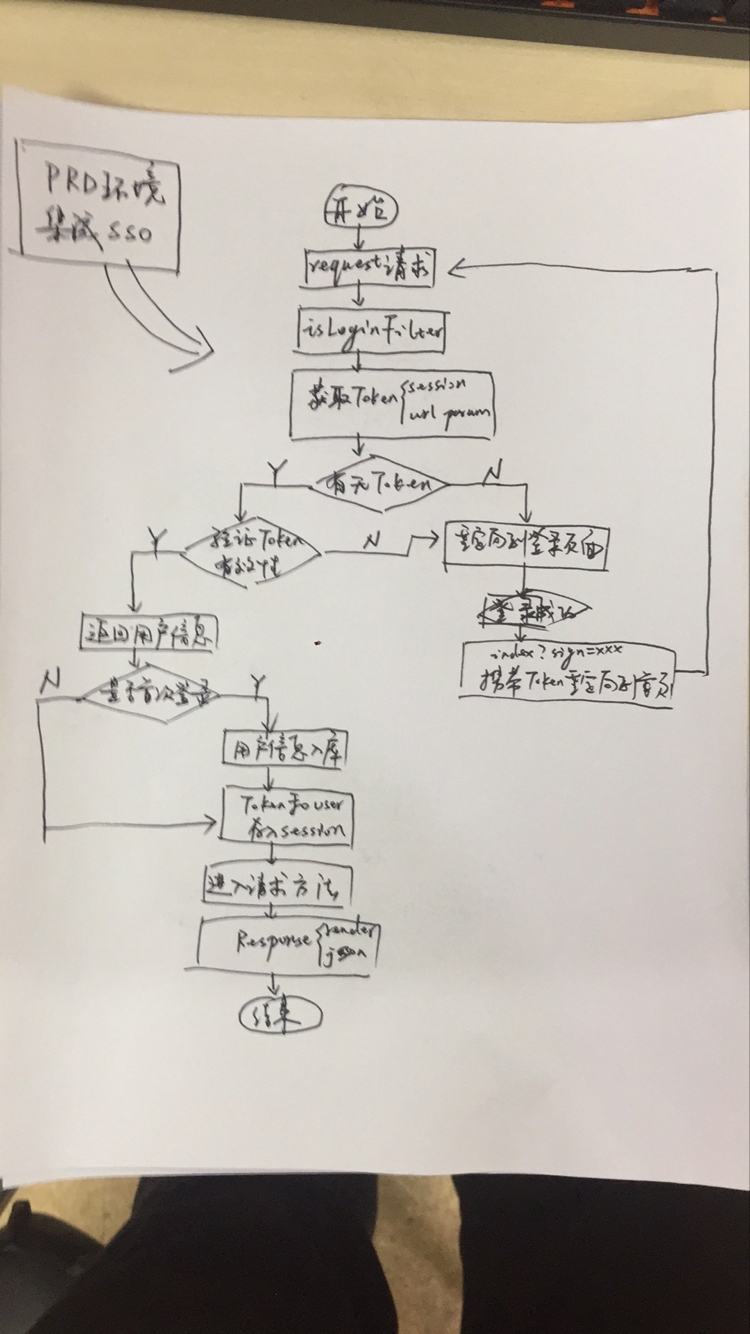 PRD环境
集成SSO
开始
request请求
isLoginFilter
获取Token{session
url param
有无Token
Y
N
验证Token
有效性
Y
N
重定向到登录页面
登录成功
index?sign=xxx
携带Token重定向到首页
返回用户信息
是否首次登录
N
Y
用户信息入库
Token和user
存入session
进入请求方法
Response{render
json
结束